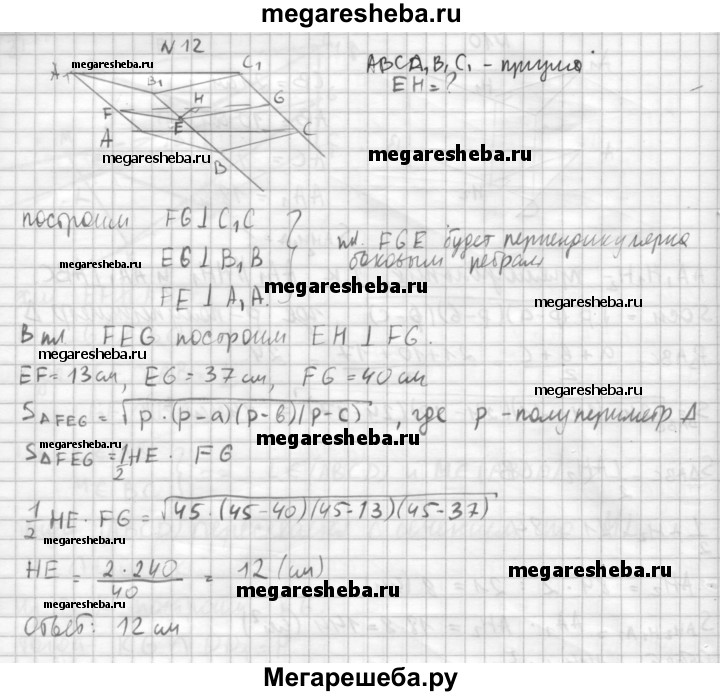 megaresheba.ru
N 12
A₁
C₁
B₁
H
F
G
E
A
C
B
megaresheba.ru
ABCA₁B₁C₁ -
EH = ?
megaresheba.ru
megaresheba.ru
построим FG ⊥ C₁C
EG ⊥ B₁B
FE ⊥ A₁A.
пл. FGE будет перпендикулярна
боковым ребрам
megaresheba.ru
megaresheba.ru
В пл. FEG построим EH ⊥ FG.
megaresheba.ru
EF = 13 см, EG = 37 см, FG = 40 см
megaresheba.ru
S△FEG = √p·(p-a)(p-b)(p-c), где p - полупериметр Δ
megaresheba.ru
S△FEG = 1/2 HE · FG
megaresheba.ru
1/2 HE · FG = √45·(45-40)(45-13)(45-37)
megaresheba.ru
HE = 2·240/40 = 12 (см)
megaresheba.ru
megaresheba.ru
Ответ: 12 см
Мегарешеба.ру